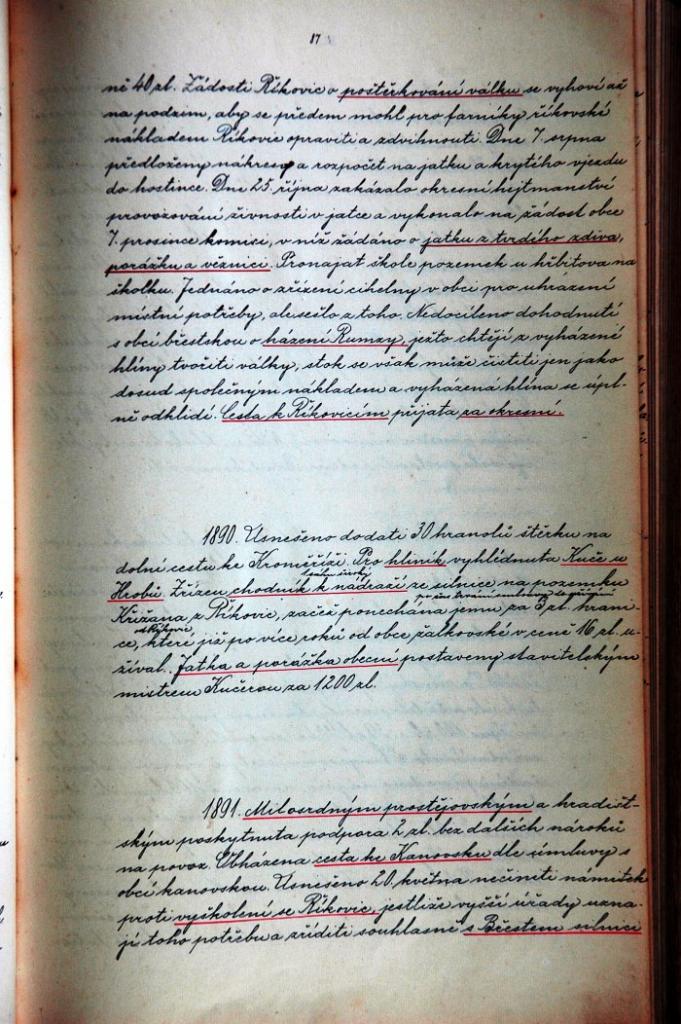 17
ně 40 zl. Žádosti Říkovic o poštěrkování válku se vyhoví až
na podzim, aby se předem mohl pro farníky říkovské
nákladem Říkovic opraviti a zdvihnouti. Dne 7. srpna
předloženy nákresy a rozpočet na jatku a krytého vjezdu
do hostince. Dne 25. října zakázalo okresní hejtmanství
provozování živnosti v jatce a vykonalo na žádost obce
7. prosince komisi, v níž žádáno o jatku z tvrdého zdiva,
porážku a věznici. Pronajat škole pozemek u hřbitova na
školku. Jednáno o zřízení cihelny v obci pro uhrazení
místní potřeby, ale sešlo z toho. Nedocíleno dohodnutí
s obcí břestskou o házení Rumzy, ježto chtějí z vyházené
hlíny tvořiti války, stok se však může čistiti jen jako
dosud společným nákladem a vyházená hlína se úpl-
ně odklidí. Cesta k Říkovicím přijata za okresní.
1890. Usnešeno dodati 30 hranolů štěrku na
dolní cestu ke Kroměříži. Pro hliník vyhlédnuta Kuče u
Hrobů. Zřízen chodník k nádraží ze silnice na pozemku
Křižana z Říkovic, začež ponechána jemu za 3 zl. hrani-
ce, které již po více roků od obce žalkovské v ceně 16 zl. u-
žíval. Jatka a porážka obecní postaveny stavitelským
mistrem Kučerou za 1200 zl.
1891. Milosrdným prostějovským a hradišt-
ským poskytnuta podpora 2 zl. bez dalších nároků
na povoz. Obházena cesta ke Kanovsku dle úmluvy s
obcí kanovskou. Usnešeno 20. května nečiniti námitek
proti vyškolení se Říkovic, jestliže vyšší úřady uzna-
jí toho potřebu a zříditi souhlasně s Břestem silnici